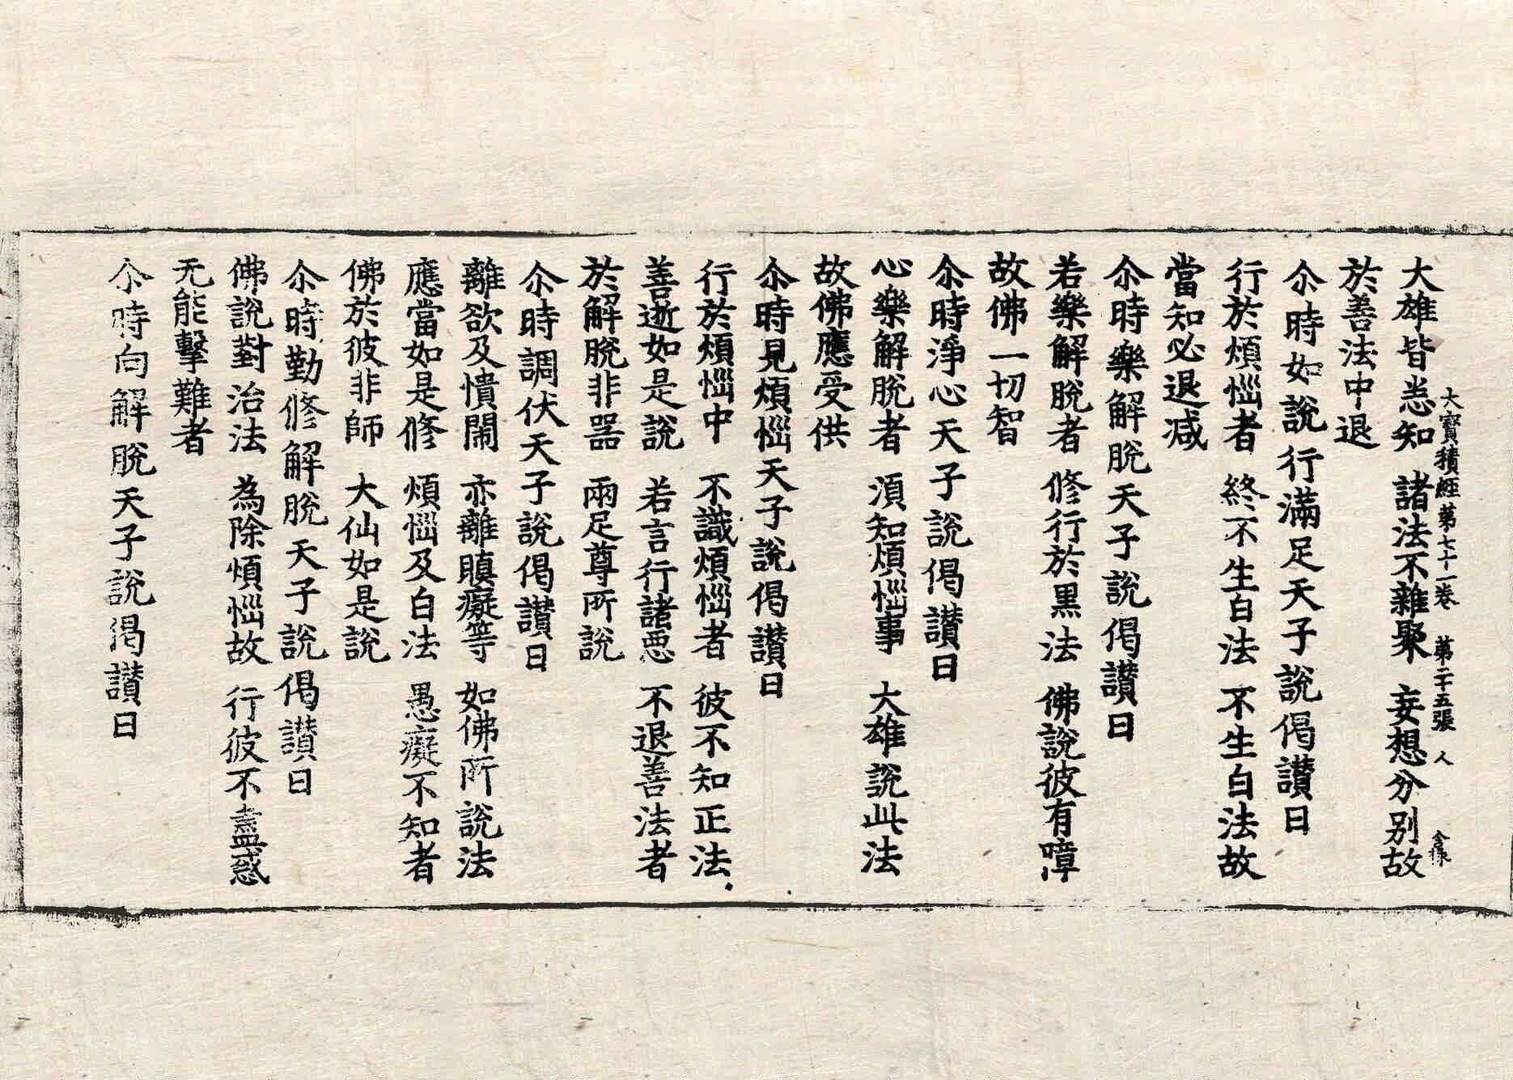 大寳積經第七十一卷　第二十五張　人
大雄皆悉知　諸法不雜聚　妄想分別故
於善法中退
尒時如說行滿足天子說偈讃曰
行於煩惱者　終不生白法　不生白法故
當知必退减
尒時樂解脫天子說偈讃曰
若樂解脫者　修行於黒法　佛說彼有障
故佛一切智
尒時淨心天子說偈讃曰
心樂解脫者　湏知煩惱事　大雄說此法
故佛應受供
尒時見煩惱天子說偈讃曰
行於煩惱中　不識煩惱者　彼不知正法
善逝如是說　若言行諸惡　不退善法者
於解脫非器　兩足尊所說
尒時調伏天子說偈讃曰
離欲及憒閙　亦離瞋癡等　如佛所說法
應當如是修　煩惱及白法　愚癡不知者
佛於彼非師　大仙如是說
尒時勤修解脫天子說偈讃曰
佛說對治法　為除煩惱故　行彼不盡惑
无能擊難者
尒時向解脫天子說偈讃曰